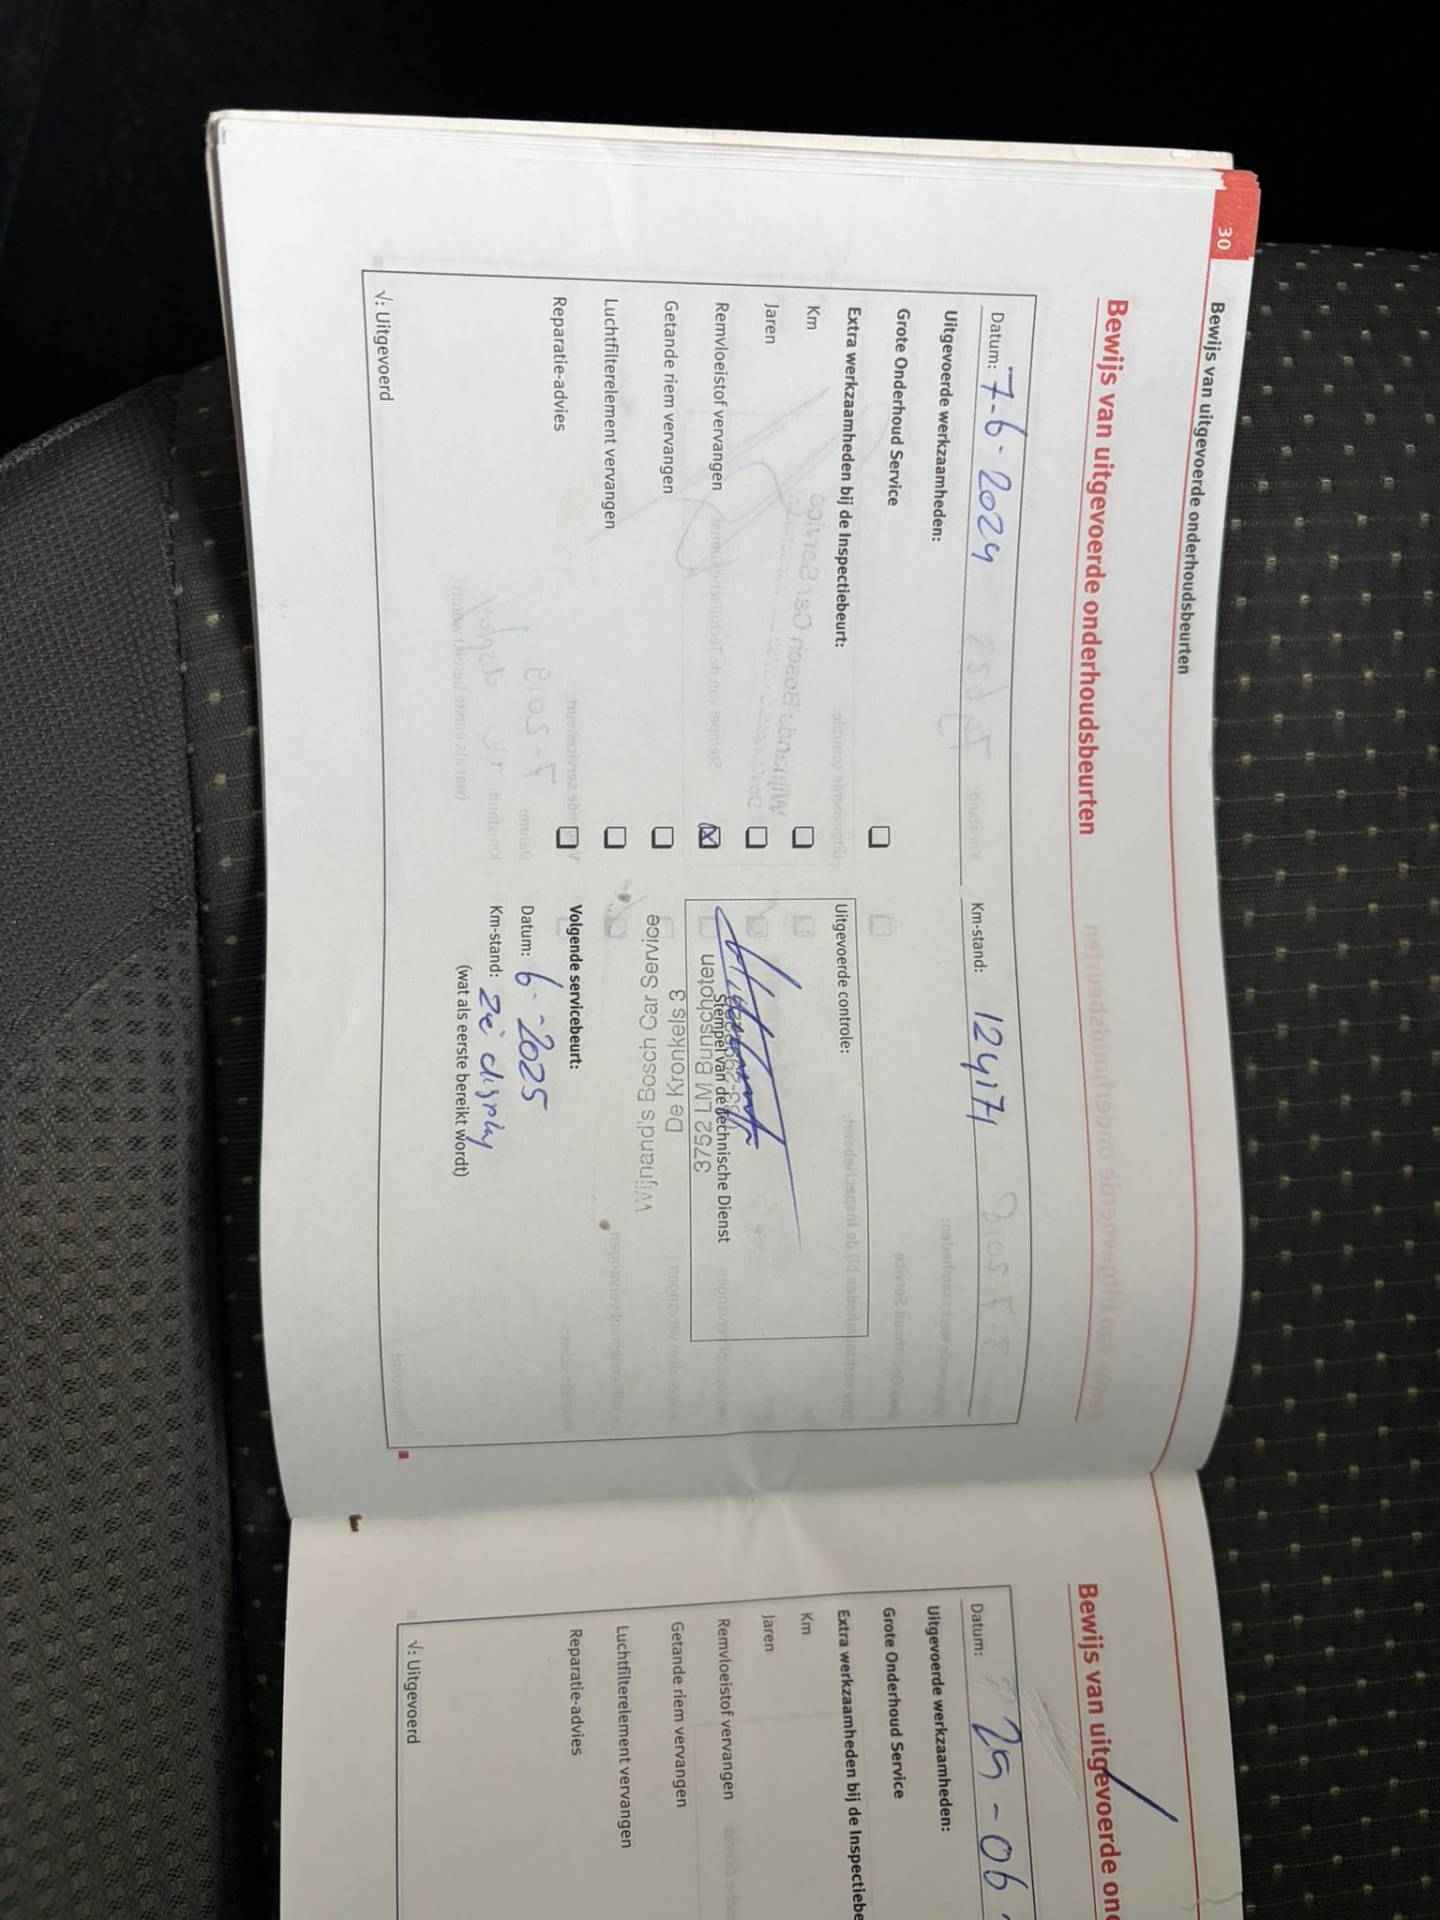 30
Bewijs van uitgevoerde onderhoudsbeurten
Bewijs van uitgevoerde onderhoudsbeurten
Datum: 7-6-2024
Km-stand: 124171
Uitgevoerde werkzaamheden:
Grote Onderhoud Service
Extra werkzaamheden bij de Inspectiebeurt:
Km
Jaren
Remvloeistof vervangen
Getande riem vervangen
Luchtfilterelement vervangen
Reparatie-advies
√: Uitgevoerd
Uitgevoerde controle:
Stempel van de Technische Dienst
3752 LM Bunschoten
De Kronkels 3
Wijnand's Bosch Car Service
Volgende servicebeurt:
Datum: 6-2025
Km-stand: zie display
(wat als eerste bereikt wordt)
Bewijs van uitgevoerde ond
Datum: 29-06
Uitgevoerde werkzaamheden:
Grote Onderhoud Service
Extra werkzaamheden bij de Inspectiebe
Km
Jaren
Remvloeistof vervangen
Getande riem vervangen
Luchtfilterelement vervangen
Reparatie-advies
√: Uitgevoerd